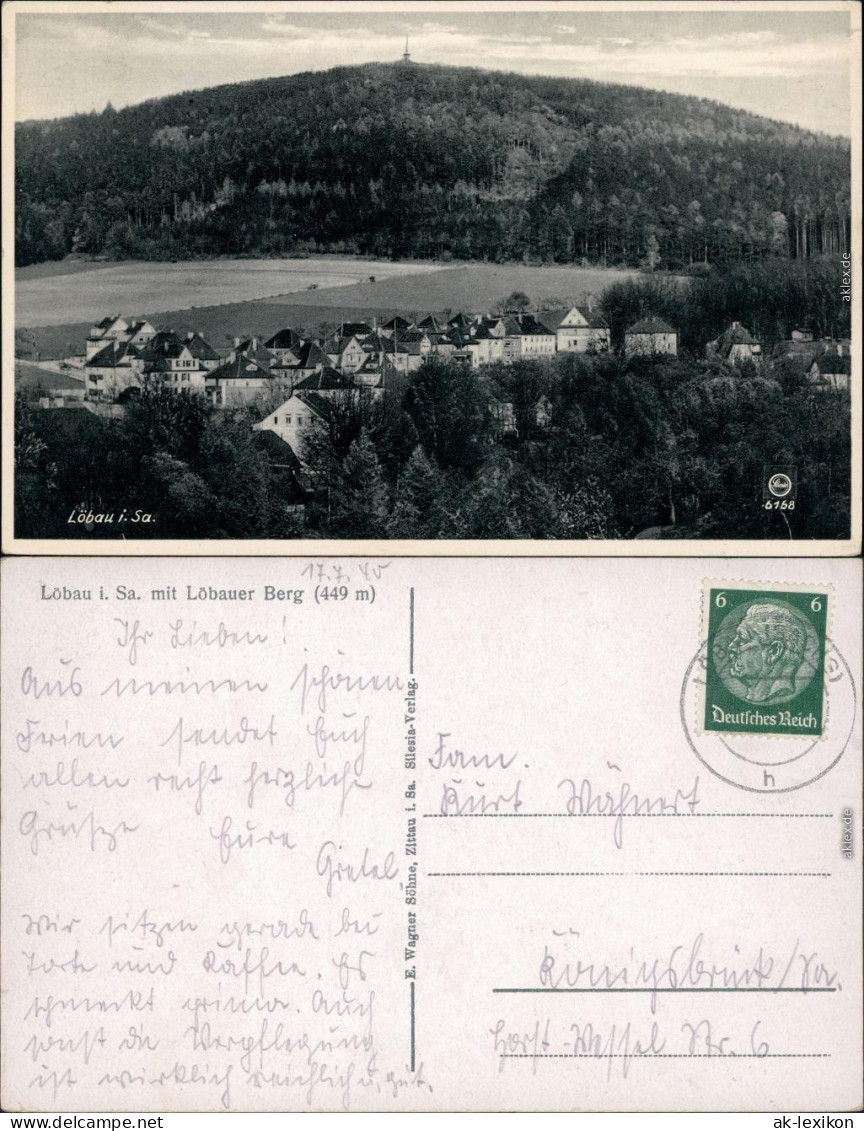 Löbau i. Sa.
6168
aklex.de
Löbau i. Sa. mit Löbauer Berg (449 m)
17.7.40
Ihr Lieben!
Aus meinen schönen
Ferien sendet Euch
allen recht herzliche
Grüsze Eure
Gretel.
Wir sitzen gerade bei
Torte und Kaffee. Es
schmeckt prima. Auch
sonst die Verpflegung
ist wirklich reichlich u. gut.
E. Wagner Söhne, Zittau i. Sa. Silesia-Verlag.
6 6
Deutsches Reich
h
Fam.
Kurt Wähnert
Königsbrück/Sa.
Horst-Wessel Str. 6
aklex.de
www.ak-lexikon.de
ak-lexikon